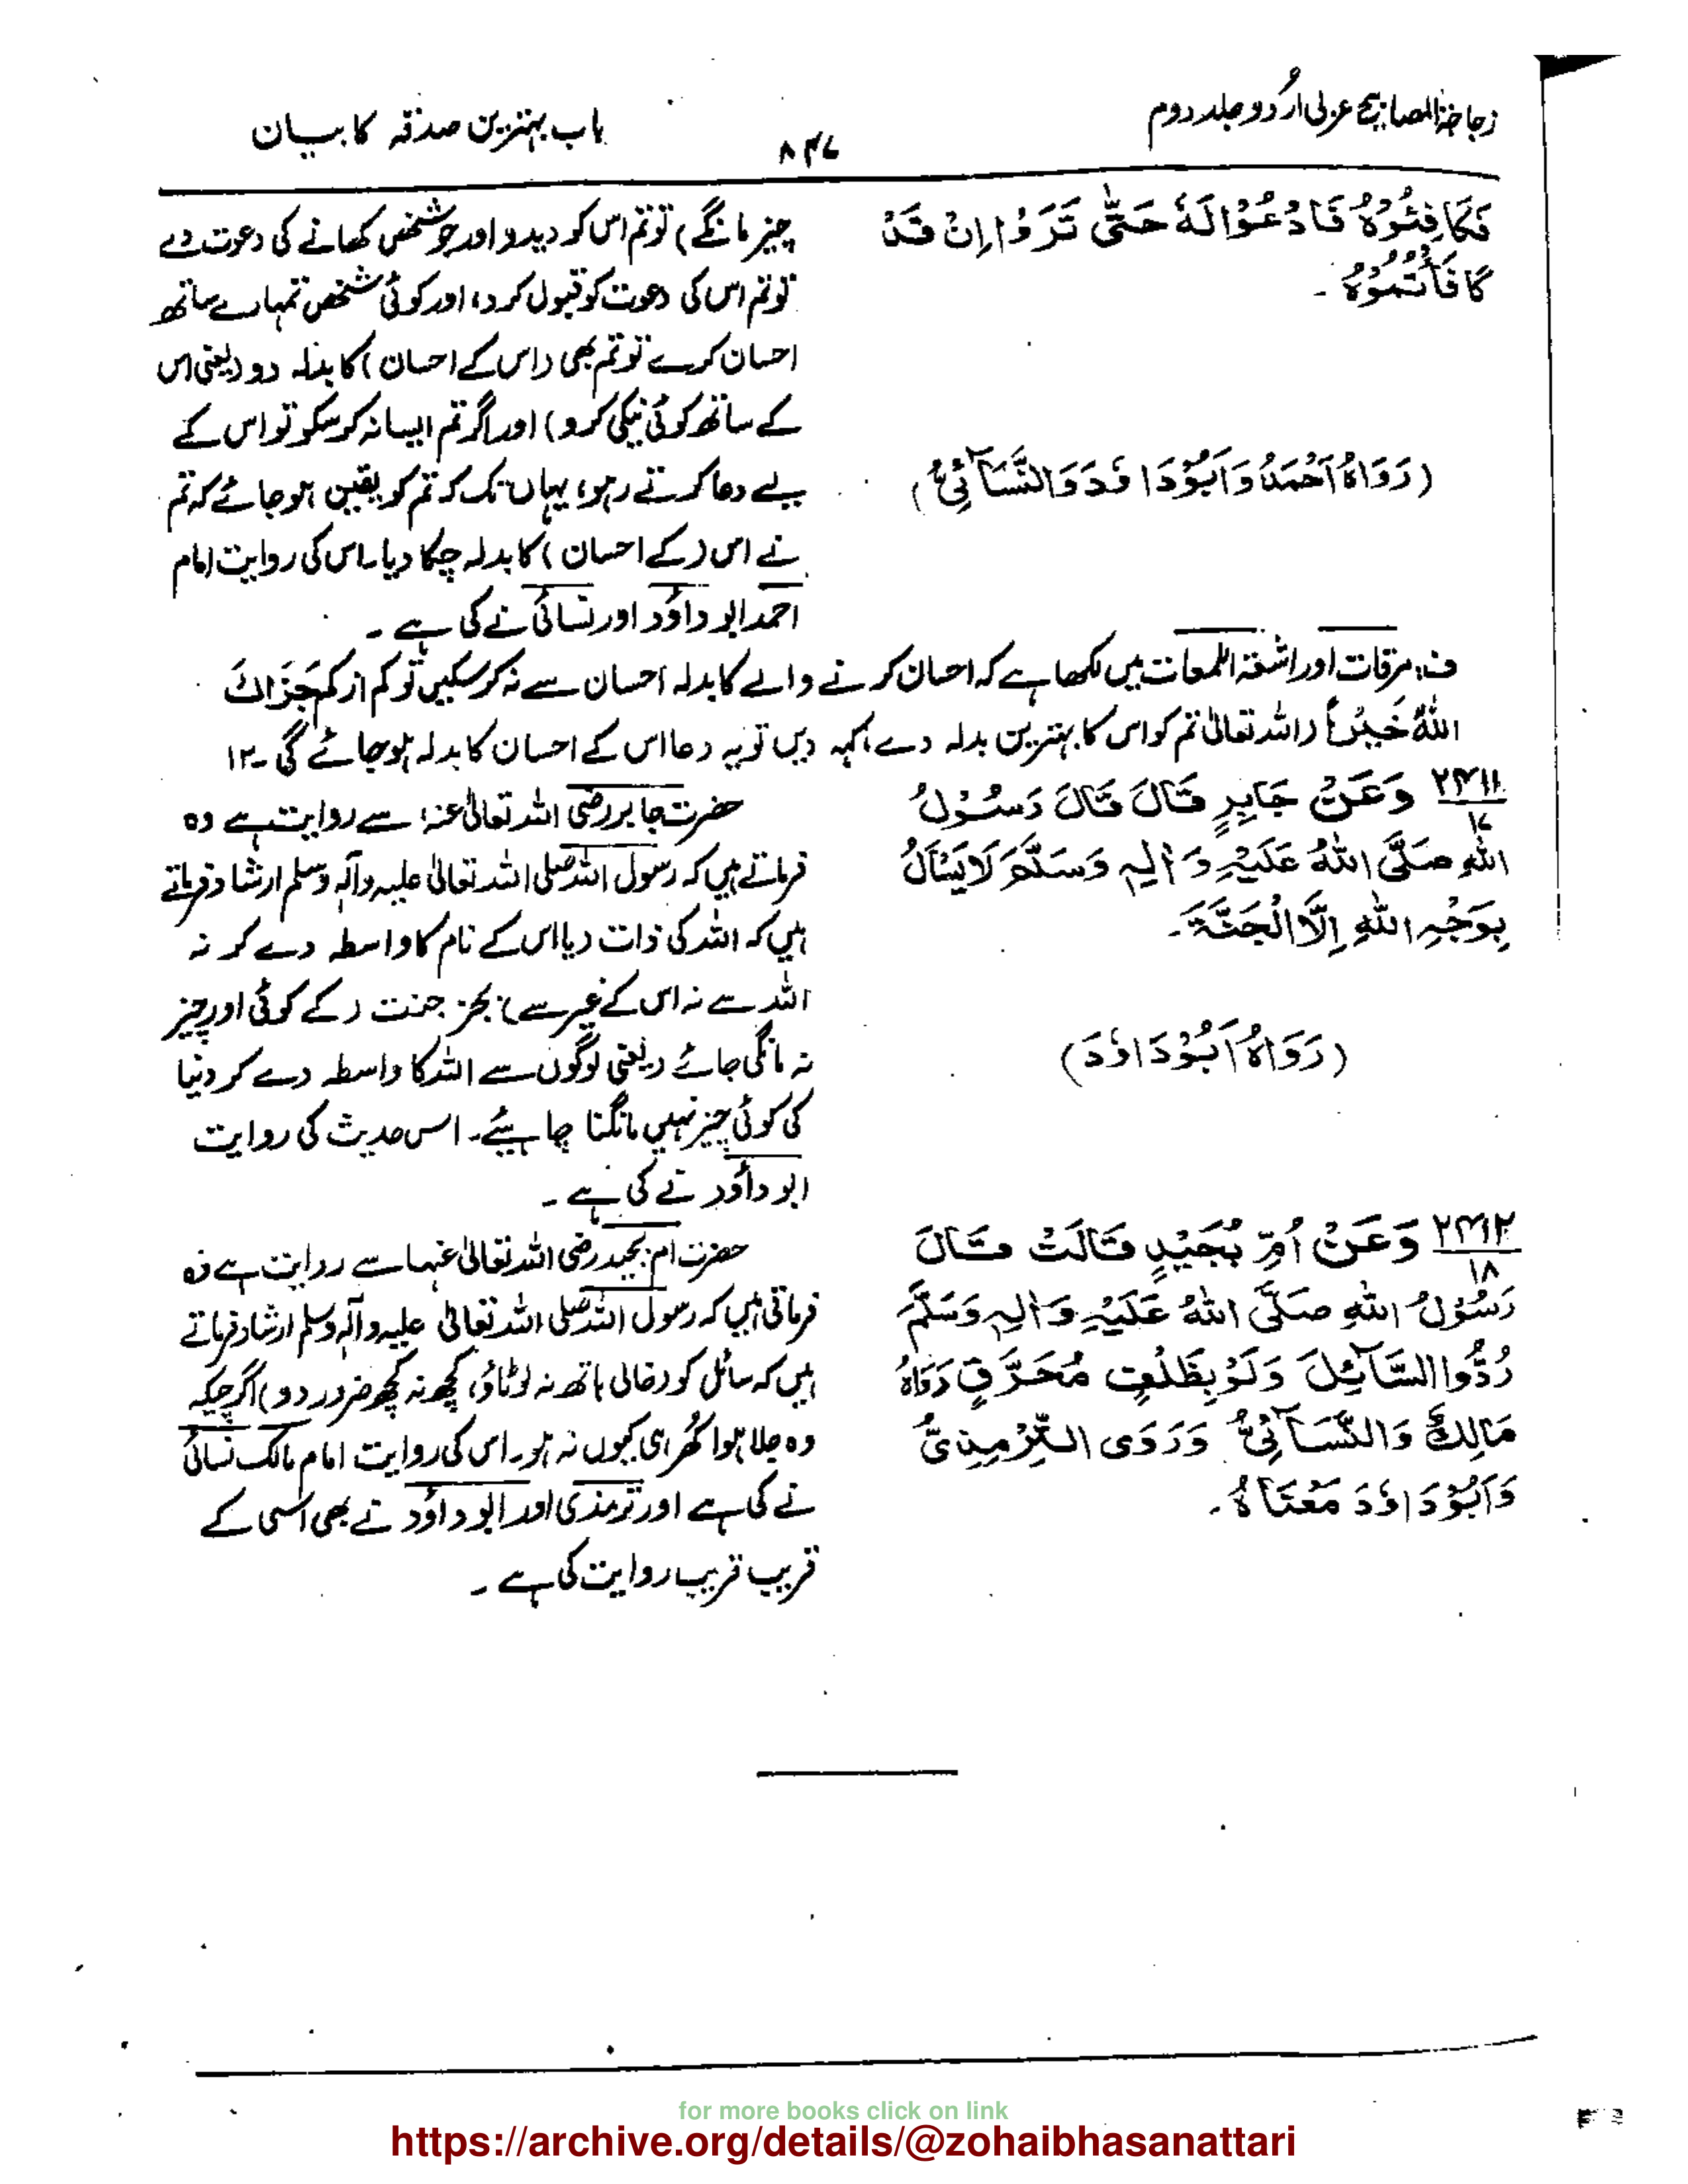 زجاجۃ المصابیح عربی اُردو جلد دوم
۸۴۷
باب بہترین صدقہ کا بیان
فَكَافِئُوْهُ فَادْعُوْا لَهٗ حَتّٰی تَرَوْا اِنْ قَدْ
كَافَأْتُمُوْهُ ۔
(رَوَاهُ اَحْمَدُ وَاَبُوْدَاؤدَ وَالنَّسَآئِیُّ)
چیز مانگے) تو تم اس کو دیدو اور جو شخص کھانے کی دعوت دے
تو تم اس کی دعوت کو قبول کرو، اور کوئی شخص تمہارے ساتھ
احسان کرے تو تم بھی (اس کے احسان) کا بدلہ دو (یعنی اس
کے ساتھ کوئی نیکی کرو) اور اگر تم ایسا نہ کر سکو تو اس کے
لیے دعا کرتے رہو، یہاں تک کہ تم کو یقین ہو جائے کہ تم
نے اس (کے احسان) کا بدلہ چکا دیا۔ اس کی روایت امام
احمد ابو داؤد اور نسائی نے کی ہے ۔
ف: مرقات اور اشعۃ اللمعات میں لکھا ہے کہ احسان کرنے والے کا بدلہ احسان سے نہ کر سکیں تو کم از کم جَزَاكَ
اللّٰهُ خَيْرًا (اللہ تعالیٰ تم کو اس کا بہترین بدلہ دے) کہہ دیں تو یہ دعا اس کے احسان کا بدلہ ہو جائے گی ۔۱۲
۲۴۱۱ وَعَنْ جَابِرٍ قَالَ قَالَ رَسُوْلُ
۱۷
اللّٰهِ صَلَّی اللّٰهُ عَلَيْهِ وَاٰلِهٖ وَسَلَّمَ لَا يَسْأَلُ
بِوَجْهِ اللّٰهِ اِلَّا الْجَنَّةَ۔
(رَوَاهُ اَبُوْدَاؤدَ)
حضرت جابر رضی اللہ تعالیٰ عنہ، سے روایت ہے وہ
فرماتے ہیں کہ رسول اللہ صلی اللہ تعالیٰ علیہ وآلہٖ وسلم ارشاد فرماتے
ہیں کہ اللہ کی ذات (یا اس کے نام کا واسطہ دے کر نہ
اللہ سے نہ اس کے غیر سے) بجز جنت (کے کوئی اور چیز
نہ مانگی جائے (یعنی لوگوں سے اللہ کا واسطہ دے کر دنیا
کی کوئی چیز نہیں مانگنا چاہیئے۔ اس حدیث کی روایت
ابو داؤد نے کی ہے ۔
۲۴۱۲ وَعَنْ اُمِّ بُجَيْدٍ قَالَتْ قَالَ
۱۸
رَسُوْلُ اللّٰهِ صَلَّی اللّٰهُ عَلَيْهِ وَاٰلِهٖ وَسَلَّمَ
رُدُّوا السَّآئِلَ وَلَوْ بِظَلْفٍ مُحَرَّقٍ رَوَاهُ
مَالِكٌ وَالنَّسَآئِیُّ وَرَوَی التِّرْمِذِیُّ
وَاَبُوْدَاؤدَ مَعْنَاهُ ۔
حضرت ام بجید رضی اللہ تعالیٰ عنہا سے روایت ہے وہ
فرماتی ہیں کہ رسول اللہ صلی اللہ تعالیٰ علیہ وآلہٖ وسلم ارشاد فرماتے
ہیں کہ سائل کو (خالی ہاتھ نہ لوٹاؤ، کچھ نہ کچھ ضرور دو) اگرچیکہ
وہ جلا ہوا کھُر ہی کیوں نہ ہو۔ اس کی روایت امام مالک نسائی
نے کی ہے اور ترمذی اور ابو داؤد نے بھی اسی کے
قریب قریب روایت کی ہے ۔
for more books click on link
https://archive.org/details/@zohaibhasanattari